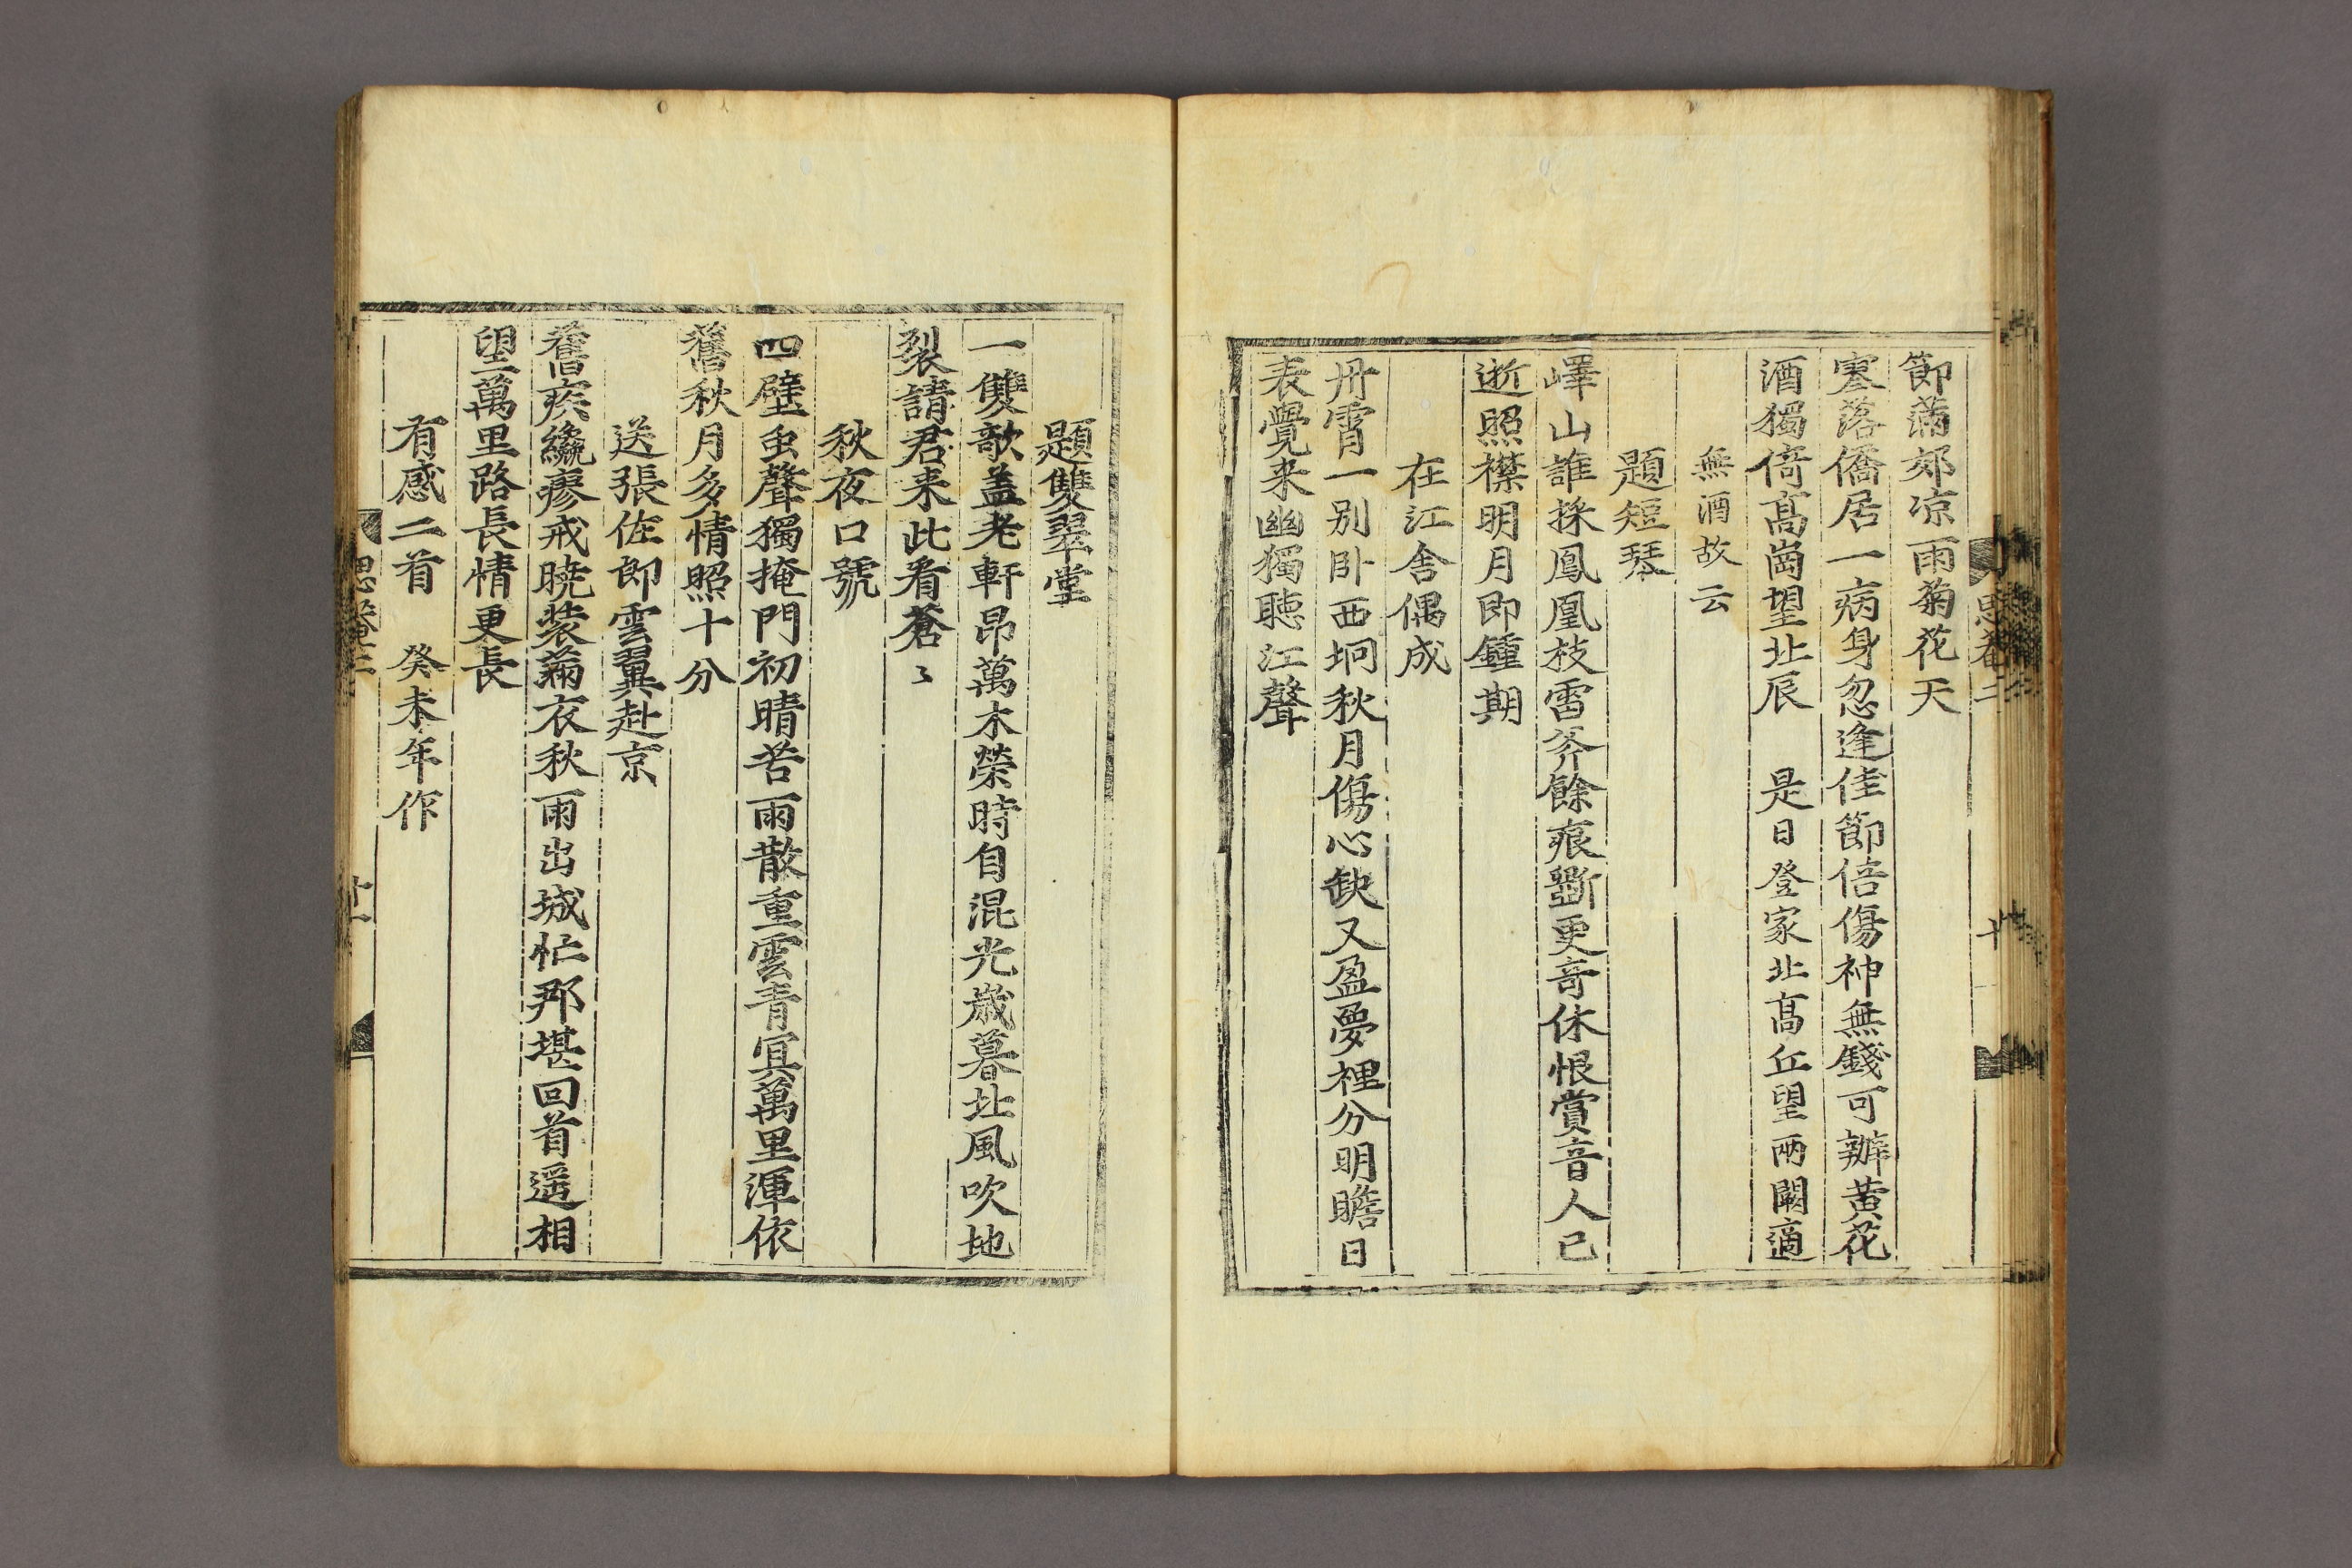 思卷二
十
節滿郊凉雨菊花天
寒落僑居一病身忽逢佳節倍傷神無錢可辦黃花
酒獨倚高崗望北辰 是日登家北高丘望兩闕適
無酒故云
題短琴
嶧山誰採鳳凰枝雷斧餘痕斷更奇休恨賞音人已
逝照襟明月即鍾期
在江舍偶成
丹霄一別卧西坰秋月傷心缺又盈夢裡分明瞻日
表覺来幽獨聽江聲
題雙翠堂
一雙欹盖老軒昂萬木榮時自混光歲暮北風吹地
裂請君来此看蒼〻
秋夜口號
四壁虫聲獨掩門初晴苦雨散重雲青冥萬里渾依
舊秋月多情照十分
送張佐郎雲翼赴京
舊疾纔瘳戒曉裝滿衣秋雨出城忙那堪回首遥相
望萬里路長情更長
有感二首 癸未年作
思卷二
十一